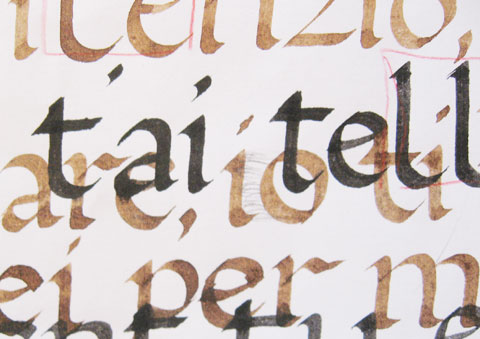 ilenzio,
t'ai tell
are, io ti
ei per m